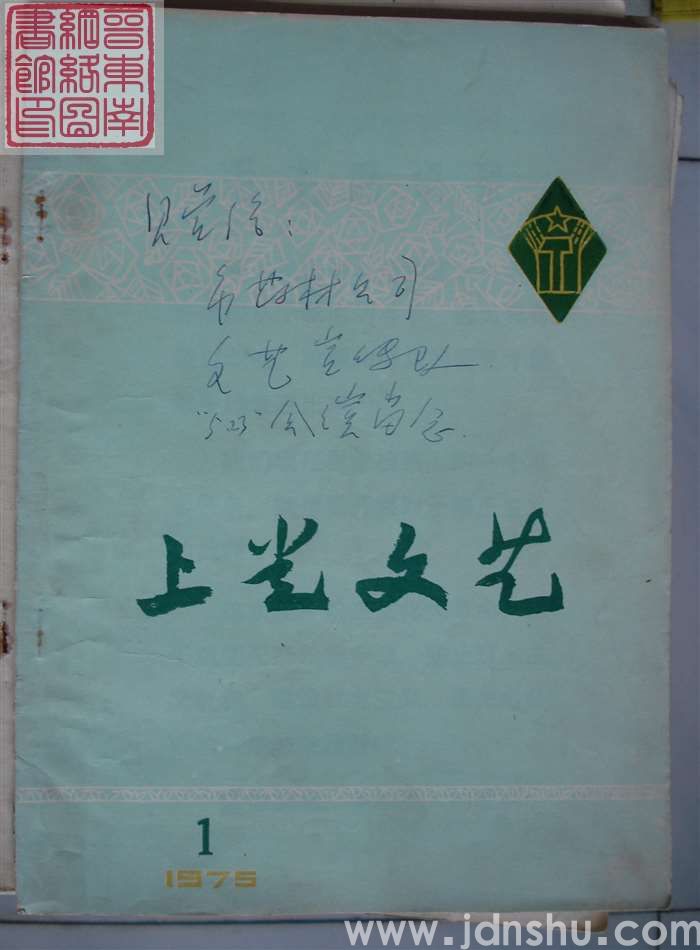 晋东南
網絡圖
書館印
市药材公司
文艺宣传队
"5.23"会演留念
上党文艺
1
1975
www.jdnshu.com